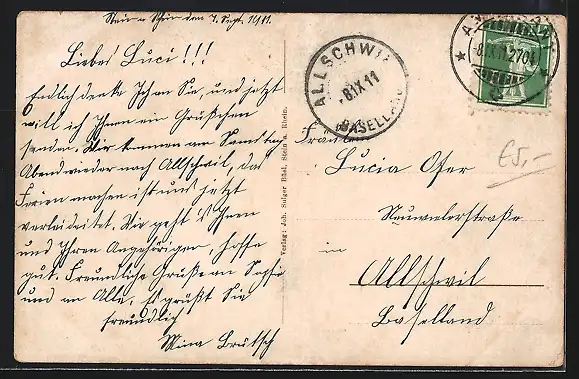 Stein a. Rhein den 7. Sept. 1911.
Liebes Luci!!!
Endlich denke Ich an Sie, und jetzt
will ich Ihnen ein Grüßchen
senden. Wir kommen am Samstag
Abend wieder nach Allschwil, das
Ferien machen ist uns jetzt
verleidet. Wie geht es Ihnen
und Ihren Angehörigen, hoffe
gut. Freundliche Grüße an Sofie
und an Alle. Es grüßt Sie
freundlich
Mina Brütsch
Verlag: Joh. Sulger Büel, Stein a. Rhein.
ALLSCHWIL
8.IX.11
BASELLAND
8.IX.11
Fräulein
Lucia Oser
Neuwilerstraße
in
Allschwil
Baselland
€5,-